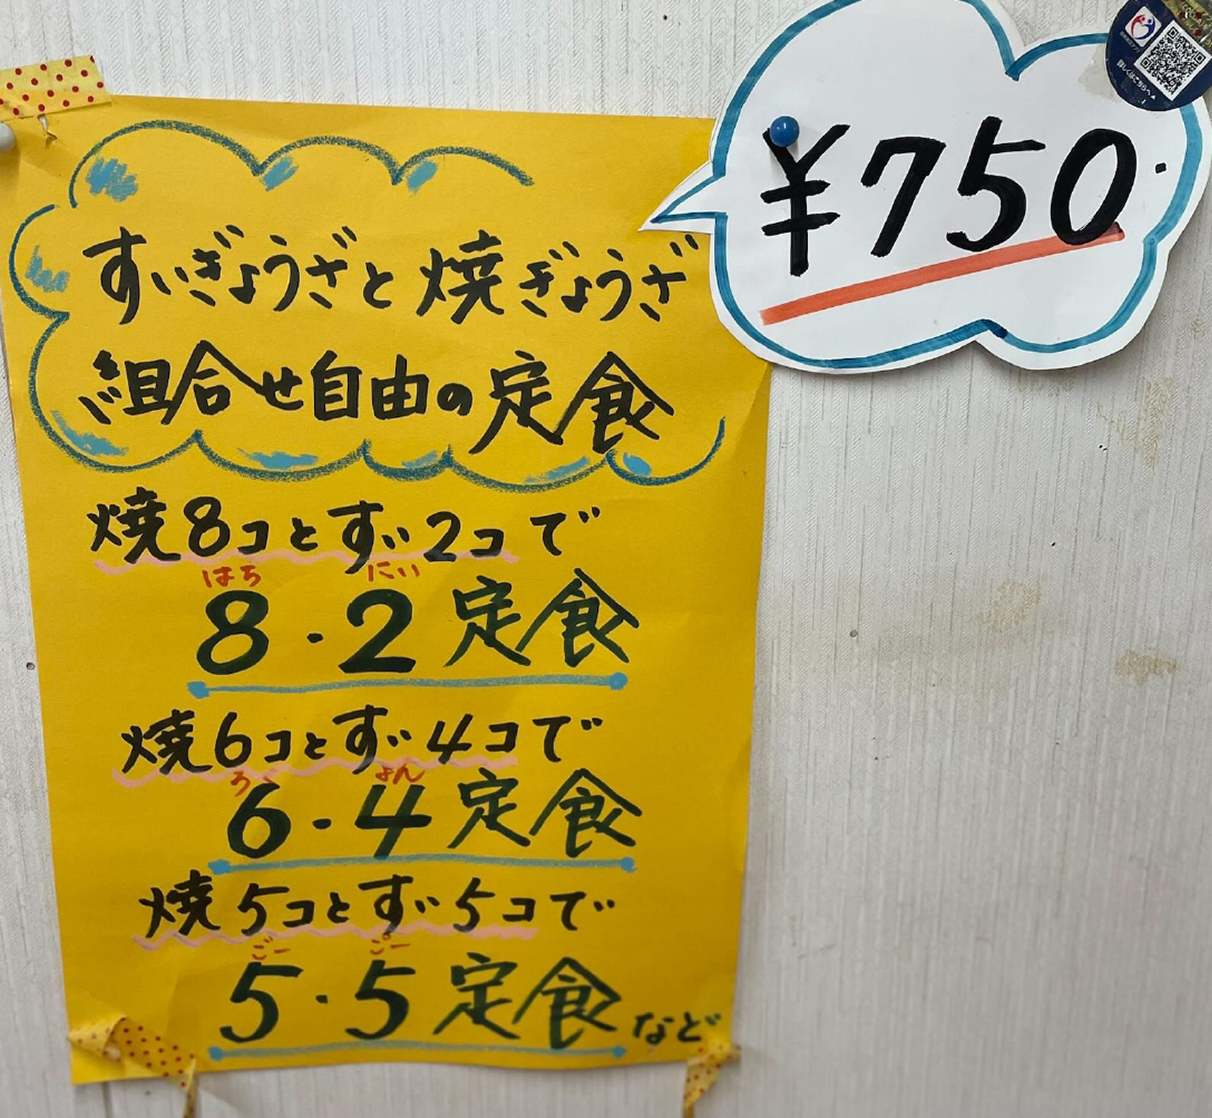 ¥750.
すいぎょうざと焼ぎょうざ
組合せ自由の定食
焼8コとすい2コで
はち にい
8・2定食
焼6コとすい4コで
ろく よん
6・4定食
焼5コとすい5コで
ごー ごー
5・5定食など
詳しくはこちらへ▲